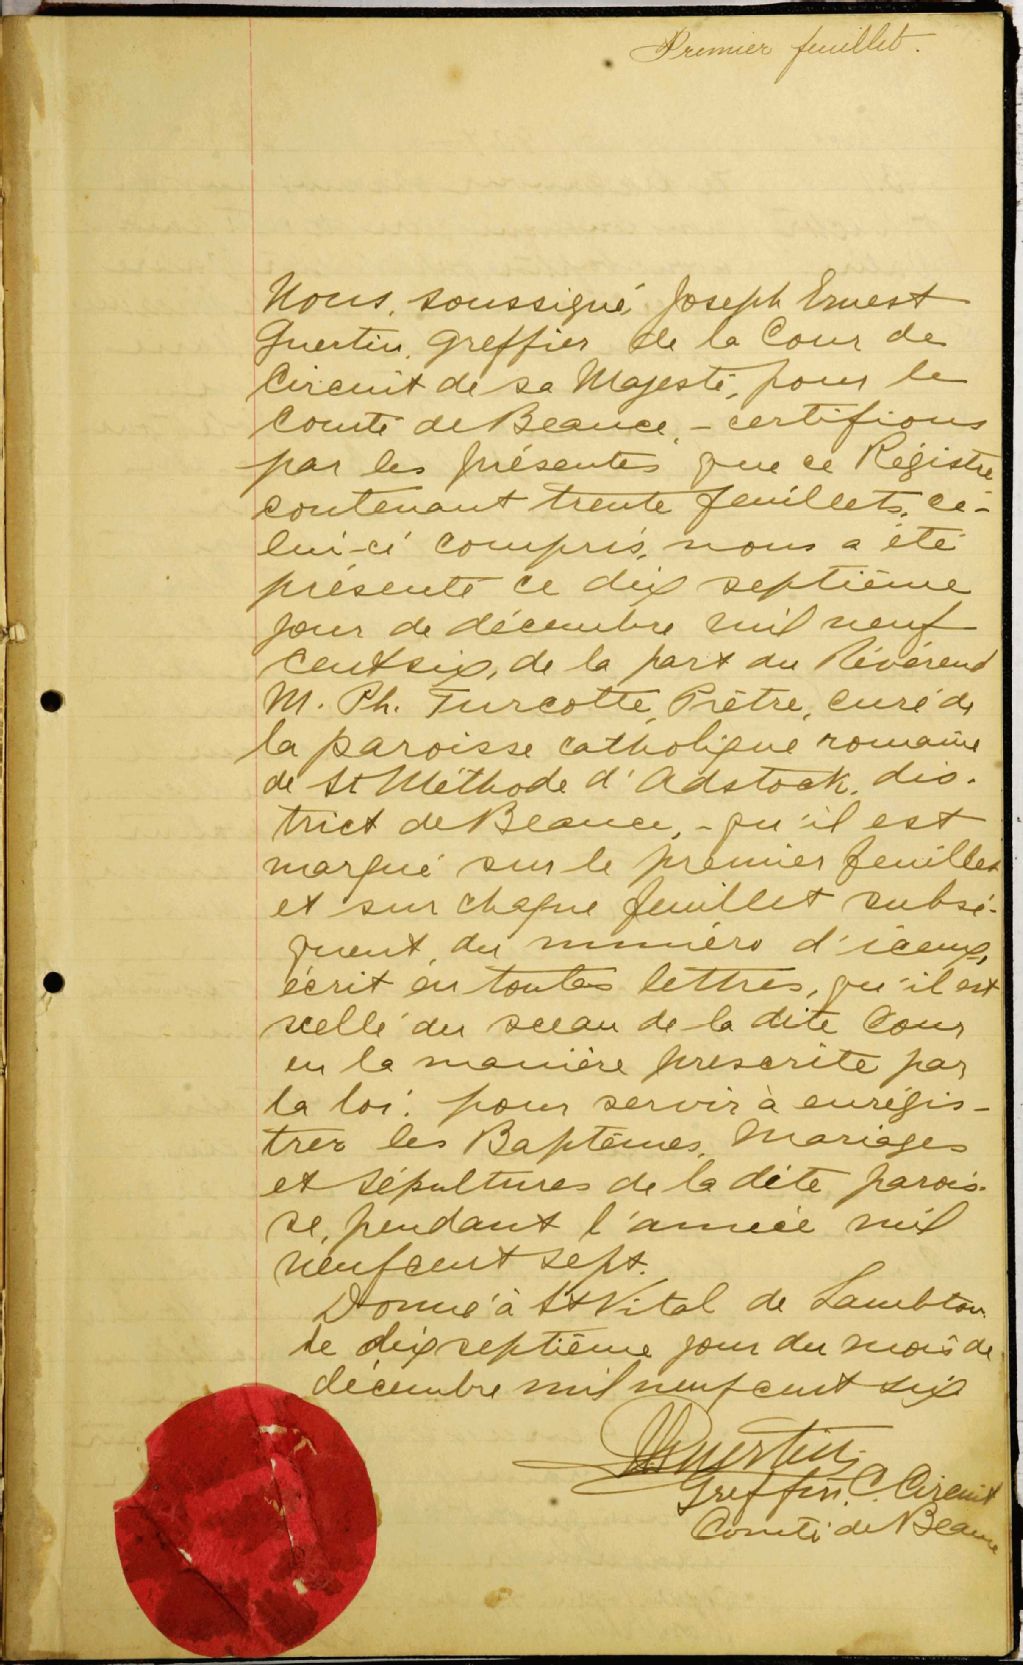 Premier feuillet.
Nous, soussigné, Joseph Ernest
Guertin, Greffier de la Cour de
Circuit de sa Majesté, pour le
Comté de Beauce, - certifions
par les présentes que ce Régistre
contenant trente feuillets, ce-
lui-ci compris, nous a été
présenté ce dix septième
jour de décembre mil neuf
cent six, de la part du Révérend
M. Ph. Turcotte, Prêtre, curé de
la paroisse catholique romaine
de St Méthode d'Adstock, dis-
trict de Beauce, - qu'il est
marqué sur le premier feuillet
et sur chaque feuillet subsé-
quent, du numéro d'iceux,
écrit en toutes lettres, qu'il est
scellé du sceau de la dite Cour
en la manière prescrite par
la loi: pour servir à enrégis-
trer les Baptêmes, Mariages
et Sépultures de la dite parois-
se, pendant l'année mil
neuf cent sept.
Donné à St Vital de Lambton
le dix septième jour du mois de
décembre mil neuf cent six
JEGuertin
Greffier. C. Circuit
Comté de Beauce